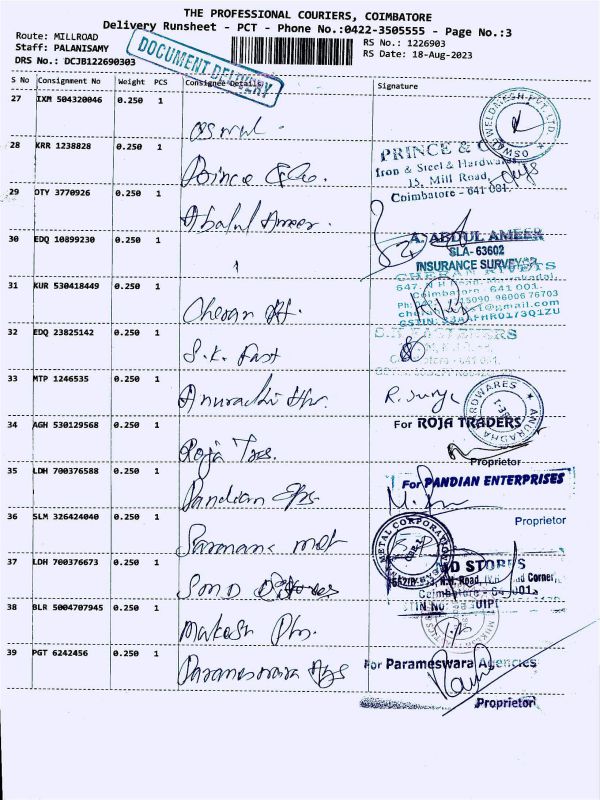 THE PROFESSIONAL COURIERS, COIMBATORE
Delivery Runsheet - PCT - Phone No.:0422-3505555 - Page No.:3
Route: MILLROAD
RS No.: 1226903
Staff: PALANISAMY
RS Date: 18-Aug-2023
DRS No.: DCJB122690303
DOCUMENT DELIVERY
S No Consignment No Weight PCS Consignee Details Signature
27 IXM 504320046 0.250 1
WELDMESH PVT. LTD.
28 KRR 1238828 0.250 1
Prince & Co.
PRINCE & CO
Iron & Steel & Hardwares
15, Mill Road,
Coimbatore - 641 001.
29 OTY 3770926 0.250 1
Abdul Ameer.
A. ABDUL AMEER
SLA- 63602
INSURANCE SURVEYOR
30 EDQ 10899230 0.250 1
31 KUR 530418449 0.250 1
Cheran
641 001.
15090, 96006 76703
32 EDQ 23825142 0.250 1
S.K. Fast
33 MTP 1246535 0.250 1
R. Surya
ANURADHA HARDWARES
34 AGH 530129568 0.250 1
Roja Trs.
For ROJA TRADERS
Proprietor
35 LDH 700376588 0.250 1
Pandian Eps
For PANDIAN ENTERPRISES
Proprietor
36 SLM 326424040 0.250 1
METAL CORPORATION
37 LDH 700376673 0.250 1
MD STORES
Coimbatore - 641 001.
38 BLR 5004707945 0.250 1
Makesh Phr.
39 PGT 6242456 0.250 1
Parameswara Ags
For Parameswara Agencies
Proprietor